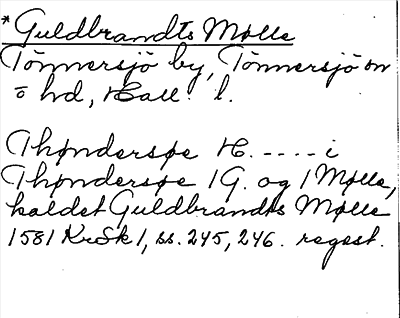 * Guldbrandts Mølle
Tönnersjö by, Tönnersjö sn
o hd, Hall. l.
Thøndersøe H. ---- i
Thøndersøe 1 G. og 1 Mølle,
kaldet Guldbrandts Mølle
1581 KrSk 1, ss. 245, 246. regest.